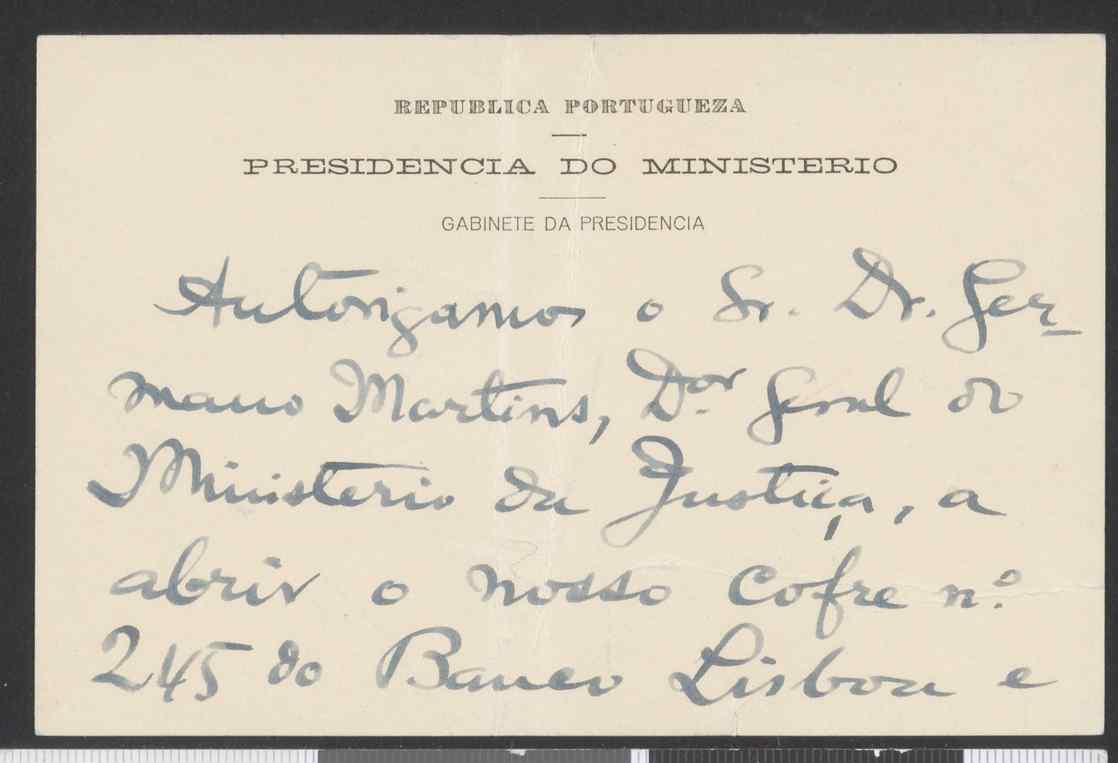 REPUBLICA PORTUGUEZA
PRESIDENCIA DO MINISTERIO
GABINETE DA PRESIDENCIA
Autorizamos o Sr. Dr. Ger-
mano Martins, Dor. Geral do
Ministerio da Justiça, a
abrir o nosso cofre n.º
245 do Banco Lisboa e